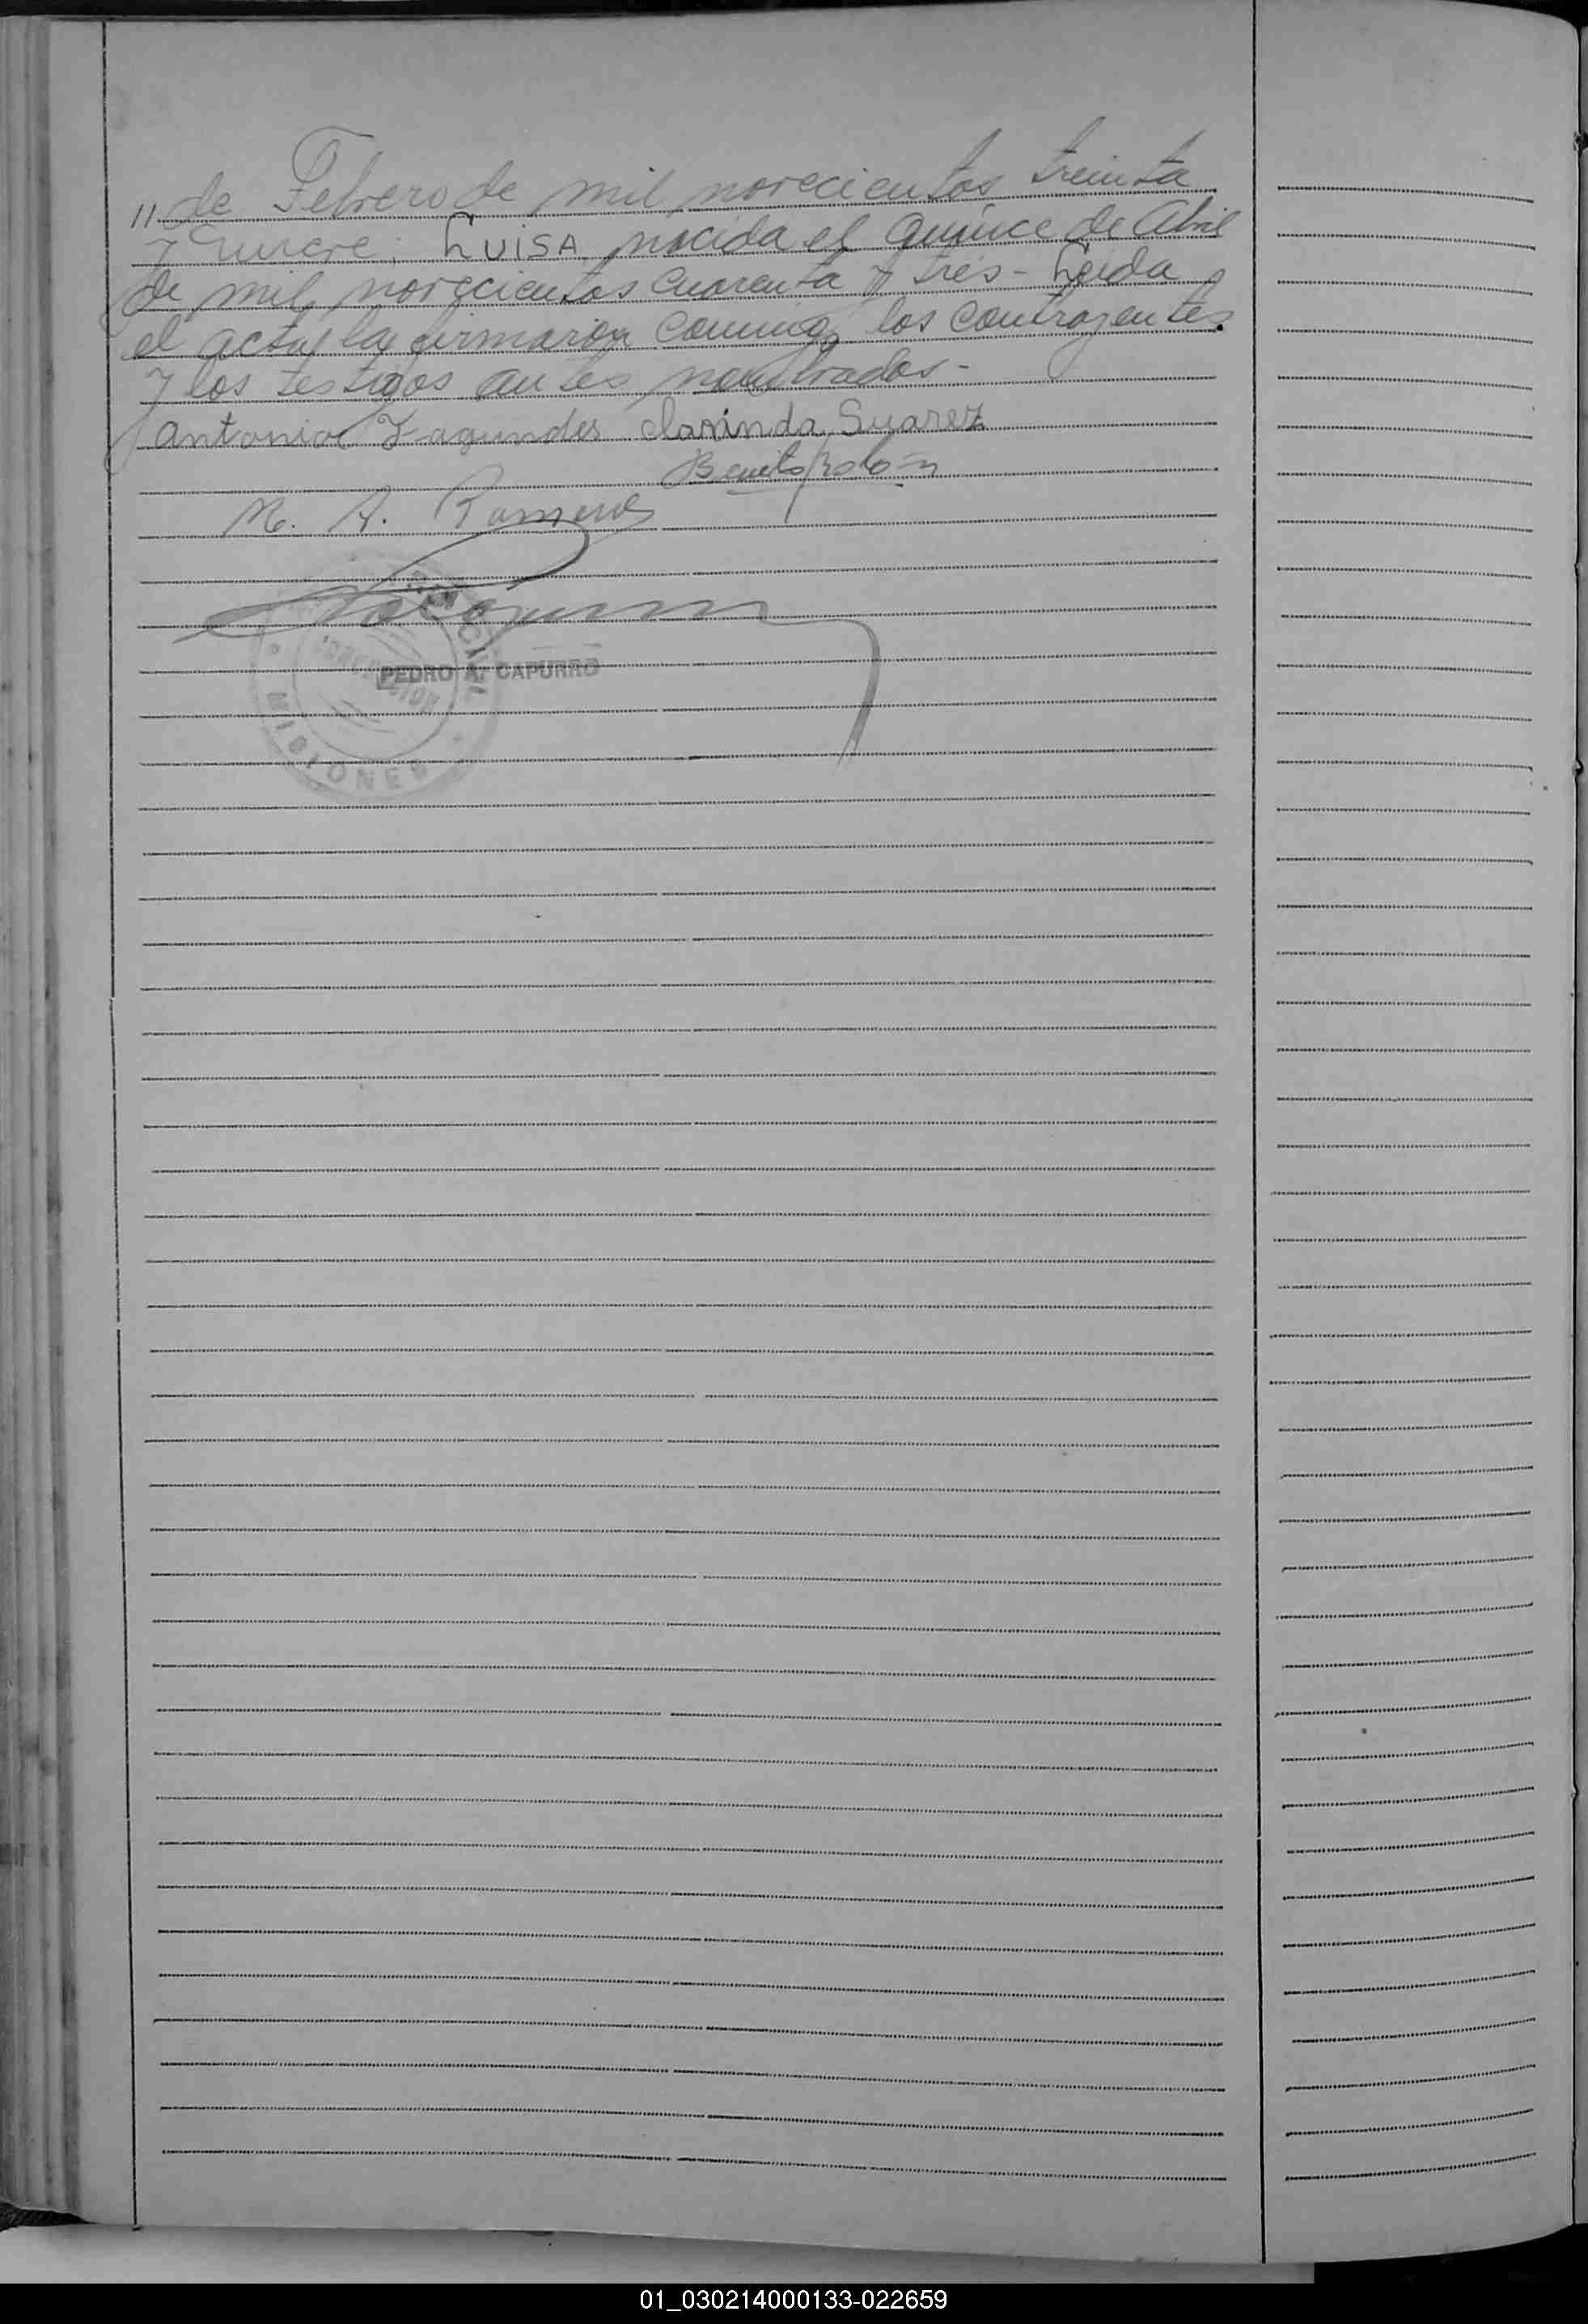 11. de Febrero de mil novecientos treinta
y nueve; LUISA nacida el quince de Abril
de mil novecientos cuarenta y tres - Leida
el acta, la firmaron conmigo los contrayentes
y los testigos antes nombrados -
Antonio Fagundes Clarinda Suarez
Benito Rolón
M. A. Romero
CIVIL
PEDRO A. CAPURRO
MISIONES
01_030214000133-022659